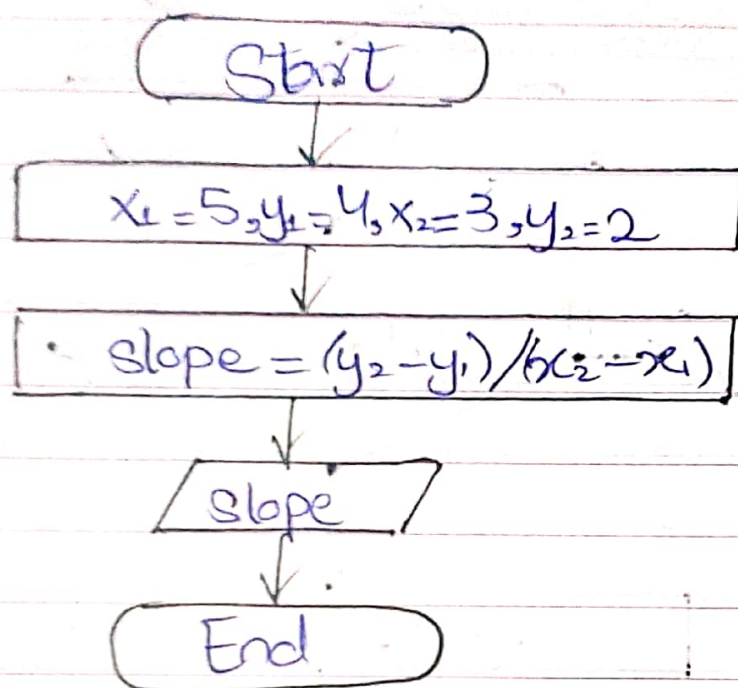 Start
x₁=5,y₁=4,x₂=3,y₂=2
slope=(y₂-y₁)/(x₂-x₁)
slope
End